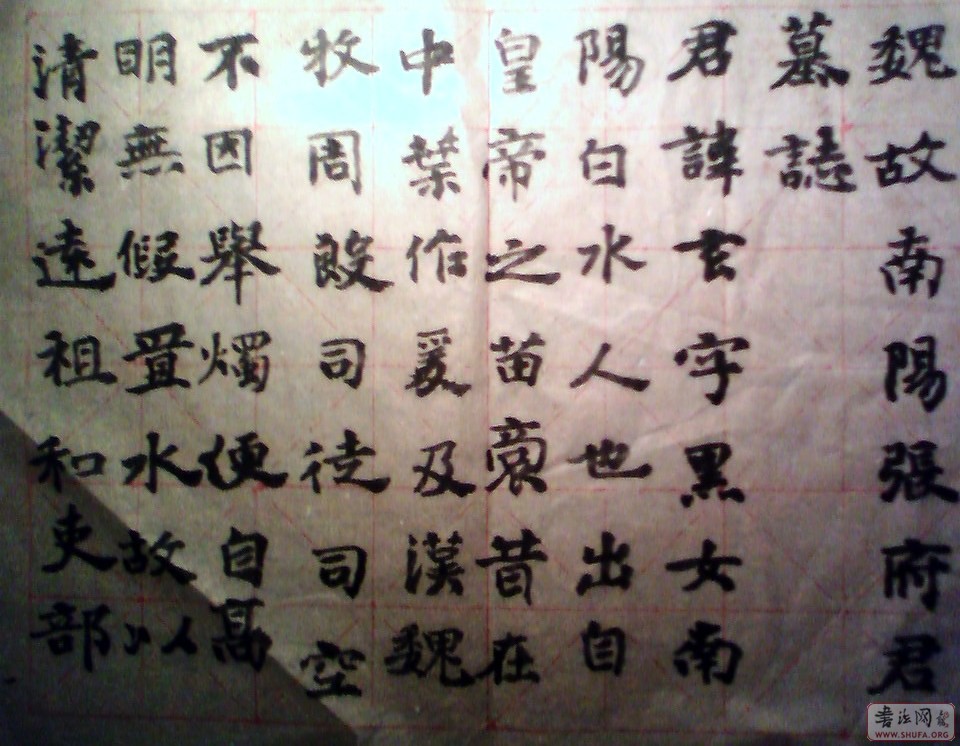 魏故南陽張府君
墓誌
君諱玄字黑女南
陽白水人也出自
皇帝之苗裔昔在
中葉作爰及漢魏
牧周殷司徒司空
不因舉燭便自高
明無假置水故以
清潔遠祖和吏部
书法网
WWW.SHUFA.ORG